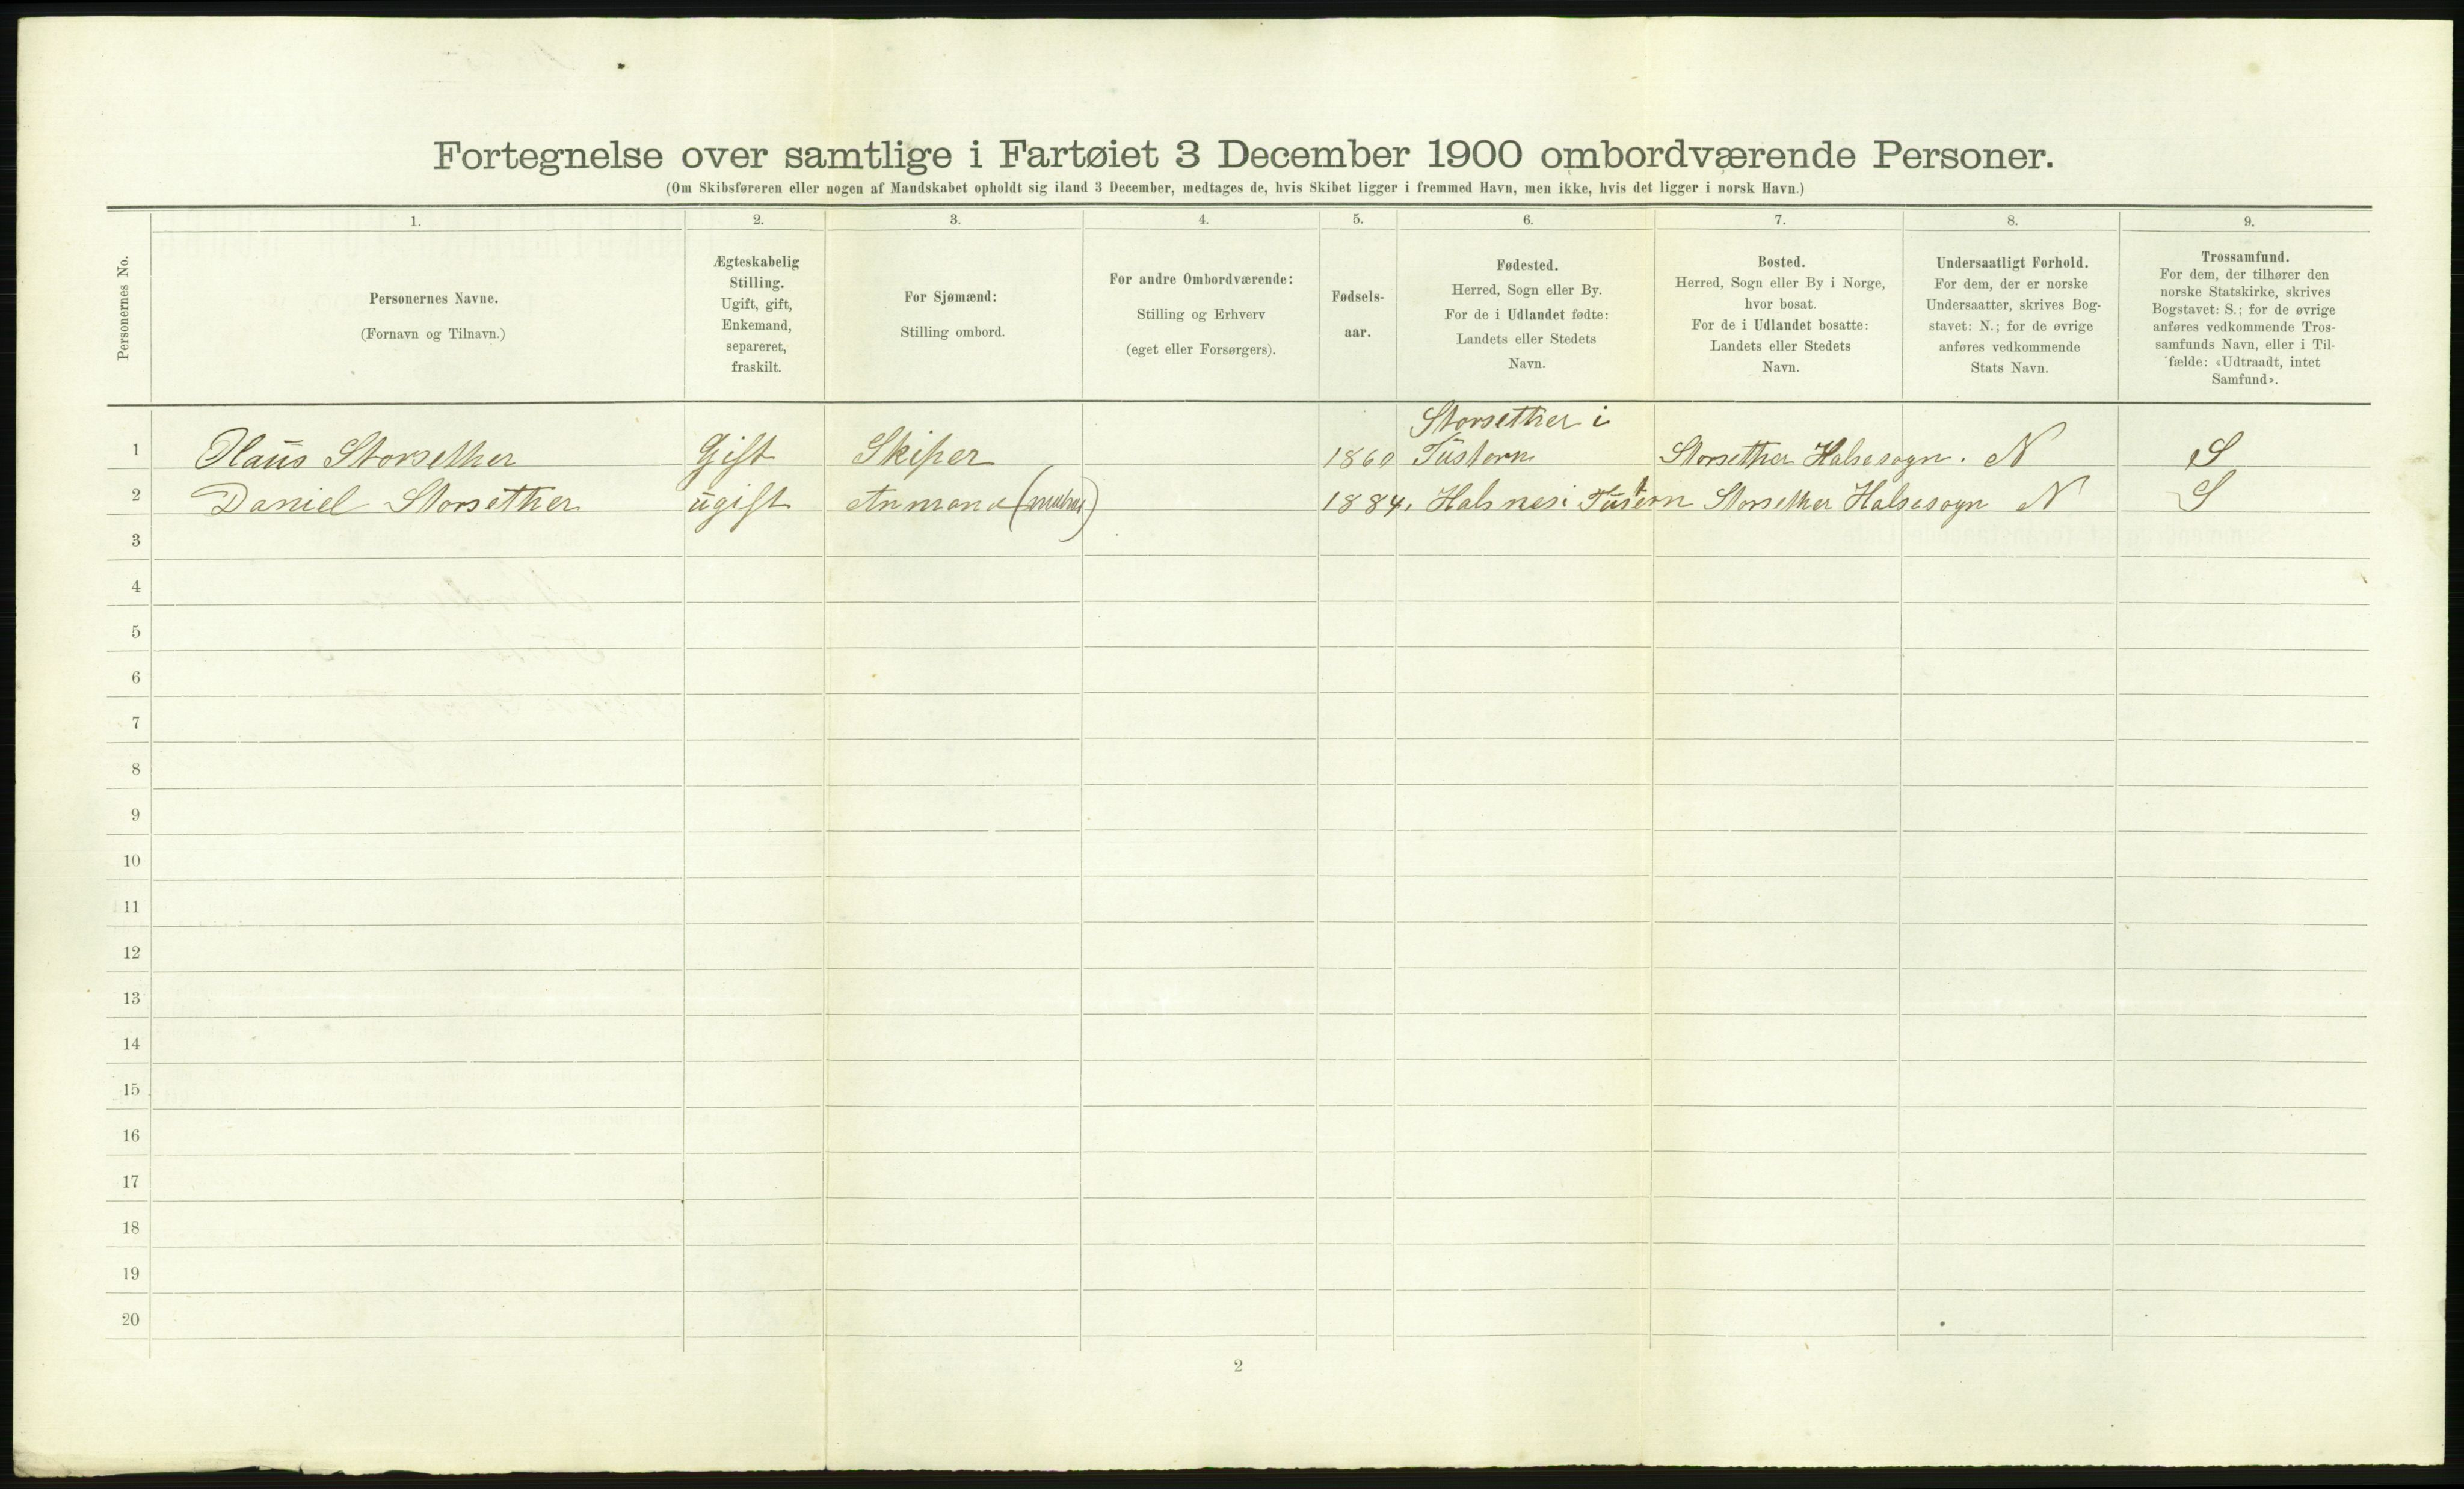 Fortegnelse over samtlige i Fartøiet 3 December 1900 ombordværende Personer.
(Om Skibsføreren eller nogen af Mandskabet opholdt sig iland 3 December, medtages de, hvis Skibet ligger i fremmed Havn, men ikke, hvis det ligger i norsk Havn.)
Personernes No.
1.
Personernes Navne.
(Fornavn og Tilnavn.)
2.
Ægteskabelig
Stilling.
Ugift, gift,
Enkemand,
separeret,
fraskilt.
3.
For Sjømænd:
Stilling ombord.
4.
For andre Ombordværende:
Stilling og Erhverv
(eget eller Forsørgers).
5.
Fødsels-
aar.
6.
Fødested.
Herred, Sogn eller By.
For de i Udlandet fødte:
Landets eller Stedets
Navn.
7.
Bosted.
Herred, Sogn eller By i Norge,
hvor bosat.
For de i Udlandet bosatte:
Landets eller Stedets
Navn.
8.
Undersaatligt Forhold.
For dem, der er norske
Undersaatter, skrives Bog-
stavet: N.; for de øvrige
anføres vedkommende
Stats Navn.
9.
Trossamfund.
For dem, der tilhører den
norske Statskirke, skrives
Bogstavet: S.; for de øvrige
anføres vedkommende Tros-
samfunds Navn, eller i Til-
fælde: «Udtraadt, intet
Samfund».
Storsether i
1 Olaus Storsether Gift Skiper 1860 Tustern Storsether Halsesogn. N S
2 Daniel Storsether ugift 1884. Halsnes i Tustern Storsether Halsesogn N S
3
4
5
6
7
8
9
10
11
12
13
14
15
16
17
18
19
20
2